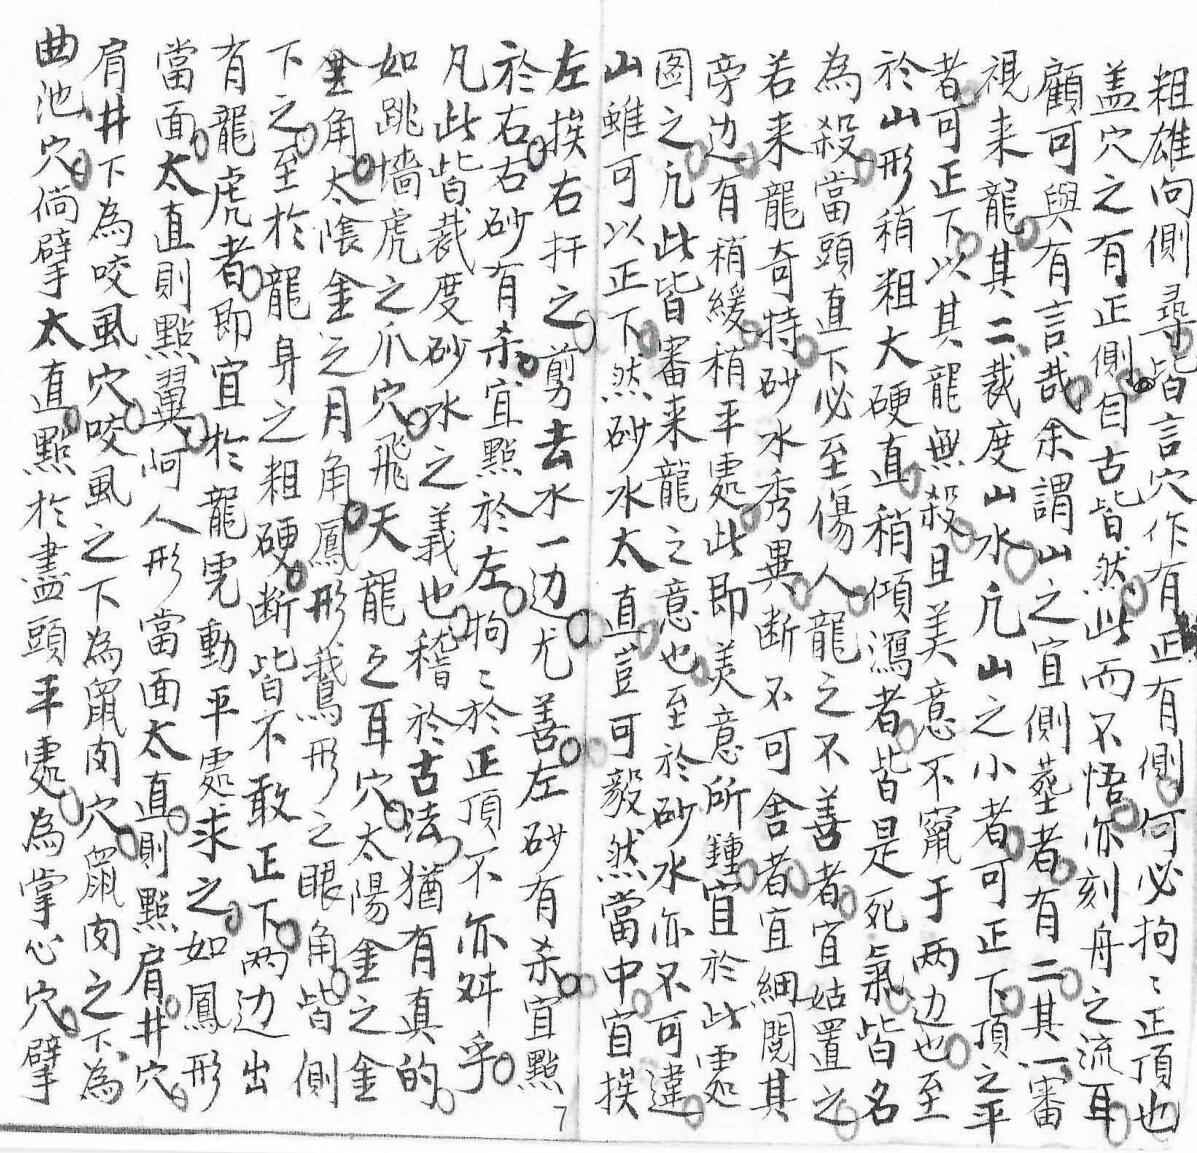 粗雄向側尋皆言穴作有正有側何必拘〻正頂也
盖穴之有正側自古皆然此而不悟亦刻舟之流耳
顧可與有言哉余謂山之宜側塟者有二其一審
視来龍其二裁度山水凢山之小者可正下頂之平
者可正下以其龍無殺且美意不竄于两边也至
於山形稍粗大硬直稍傾瀉者皆是死氣皆名
為殺當頭直下必至傷人龍之不善者宜姑置之
若来龍奇特砂水秀異断不可舍者宜細閱其
旁边有稍緩稍平處此即美意所鍾宜於此處
图之凢此皆審来龍之意也至於砂水亦不可違
山雖可以正下然砂水太直豈可毅然當中宜挨
左挨右扦之剪去水一边尤善左砂有杀宜點
於右右砂有杀宜點於左拘〻於正頂不亦舛乎
凡此皆裁度砂水之義也稽於古法猶有真的
如跳墻虎之爪穴飛天龍之耳穴太陽金之金
角太陰金之月角鳳形鵞形之眼角皆側
下之至於龍身之粗硬断皆不敢正下两边出
有龍虎者即宜於龍虎動平處求之如鳳形
當面太直則點翼呵人形當面太直則點肩井穴
肩井下為咬虱穴咬虱之下為穴之下為
曲池穴倘臂太直點於盡頭平處為掌心穴臂
7